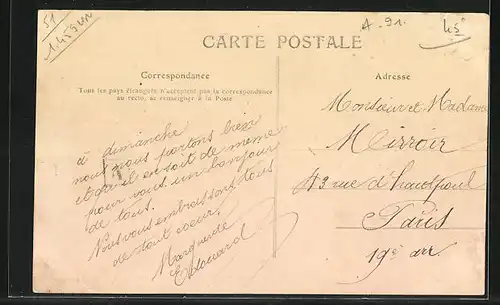 51
A-91.
45
CARTE POSTALE
Correspondance
Tous les pays étrangers n'acceptent pas la correspondance
au recto, se renseigner à la Poste
à dimanche
nous nous portons bien
et qu'il en soit de même
pour vous un bonjour
de tous.
Nous vous embrassons tous
de tout coeur.
Marguerite
Edouard
Adresse
Monsieur et Madame
Mirroir
43 rue d'hautpoul
Paris
19e arr